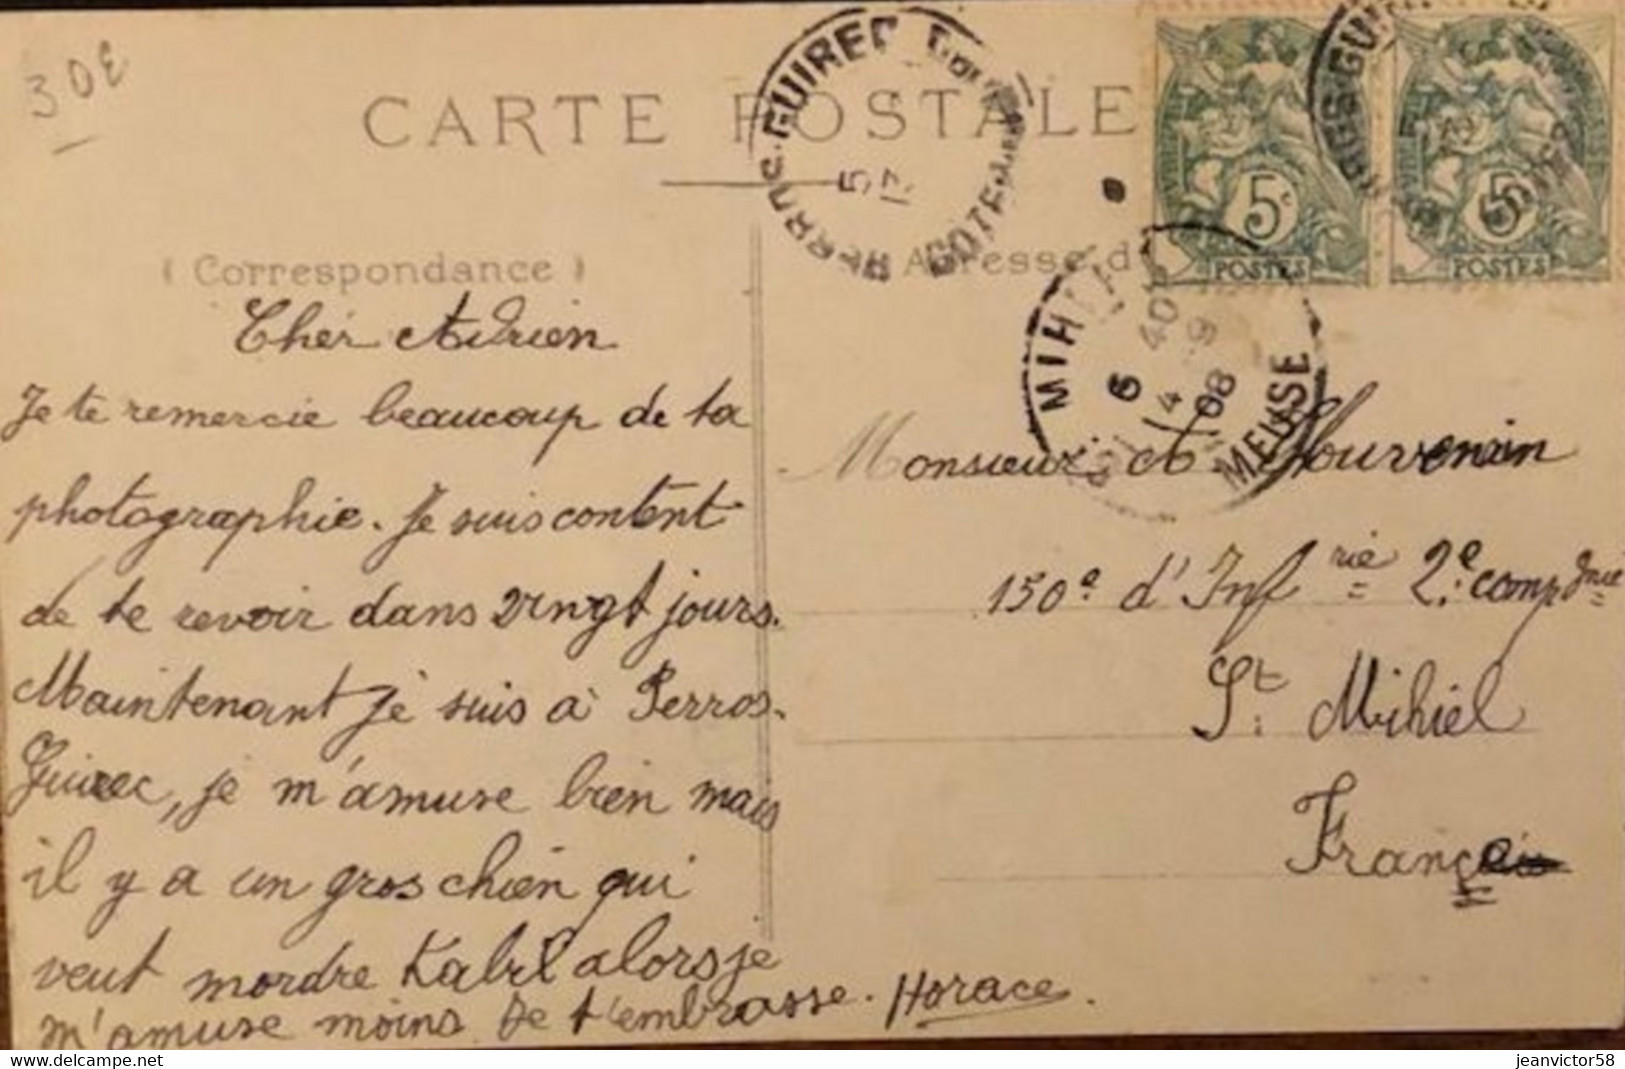 30E
CARTE POSTALE
PERROS-GUIREC
COTES
5
17
5c
POSTES
5
POSTES
(Correspondance)
Adresse d
MIHI
MEUSE
6 40
14 9
08
Cher Adrien
Je te remercie beaucoup de ta
photographie. Je suis content
de te revoir dans vingt jours.
Maintenant je suis à Perros-
Guirec, je m'amuse bien mais
il y a un gros chien qui
veut mordre Kabil alors je
m'amuse moins. Je t'embrasse. Horace.
Monsieur A Thouvenin
150e d'Infrie 2e compgnie
St. Mihiel
France
jeanvictor58